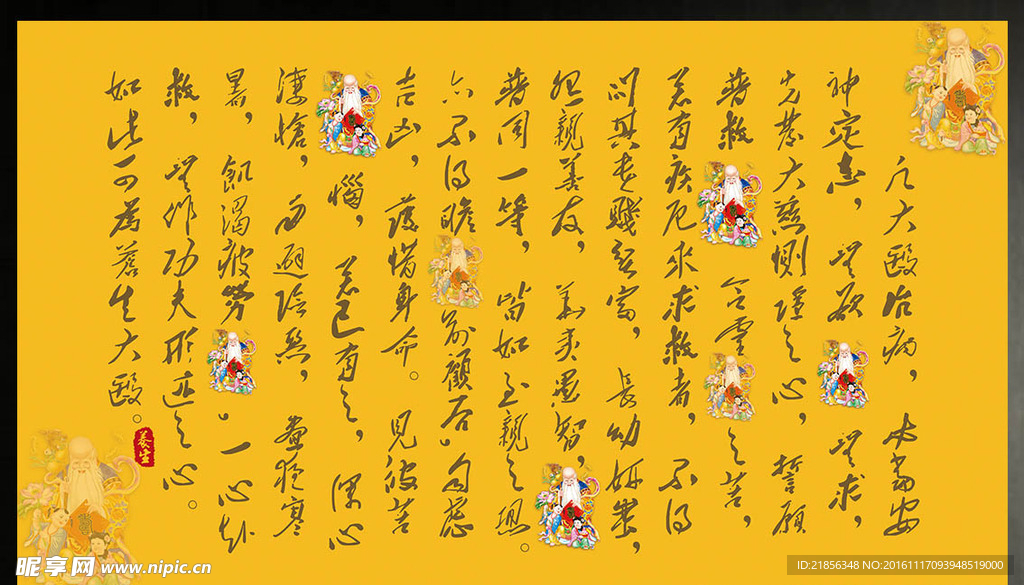 凡大醫治病，必當安
神定志，無欲無求，
先發大慈惻隱之心，誓願
普救含靈之苦，
若有疾厄來求救者，不得
問其貴賤貧富，長幼妍媸，
怨親善友，華夷愚智，
普同一等，皆如至親之想。
亦不得瞻前顧后。自慮
吉凶，護惜身命。見彼苦
惱，若己有之，深心
淒愴，勿避險巇，晝夜寒
暑，飢渴疲勞。一心赴
救，無作功夫形迹之心。
如此可為蒼生大醫。
養生
昵享网 www.nipic.cn
ID:21856348 NO:20161117093948519000